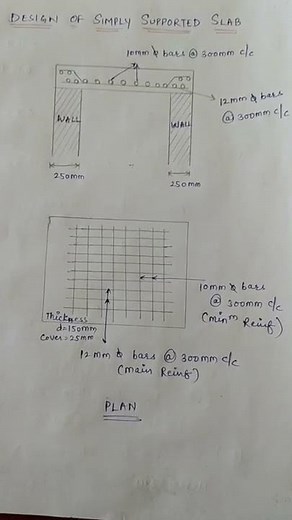 DESIGN OF SIMPLY SUPPORTED SLAB
10mm ϕ bars @ 300mm c/c
12mm ϕ bars
@ 300mm c/c
WALL
WALL
250mm
250mm
10mm ϕ bars
@ 300mm c/c
(minᵐ Reinf)
Thickness
d=150mm
Cover=25mm
12mm ϕ bars @ 300mm c/c
(main Reinf)
PLAN